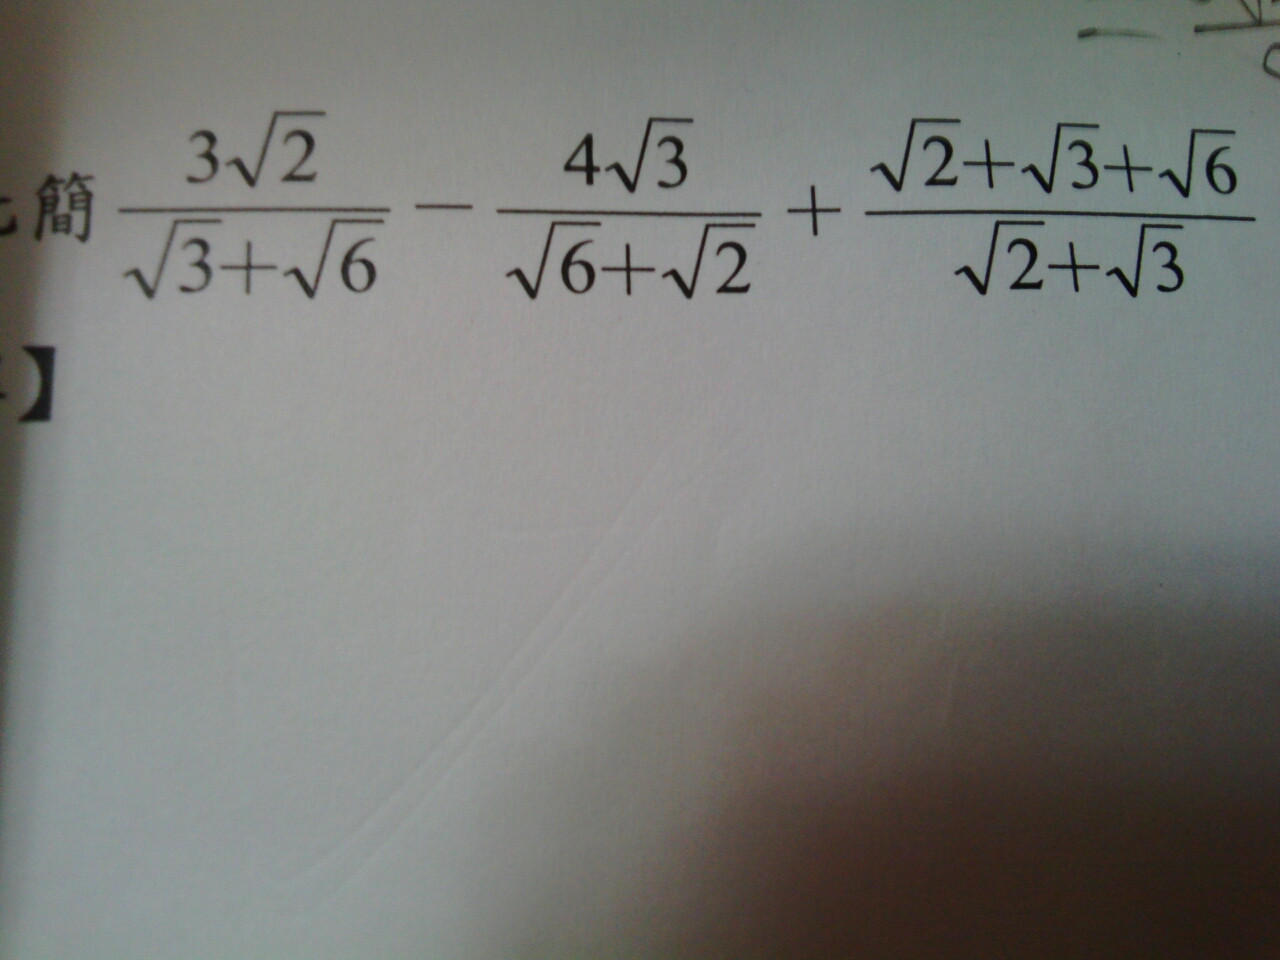 簡 \frac{3\sqrt{2}}{\sqrt{3}+\sqrt{6}} - \frac{4\sqrt{3}}{\sqrt{6}+\sqrt{2}} + \frac{\sqrt{2}+\sqrt{3}+\sqrt{6}}{\sqrt{2}+\sqrt{3}}
】